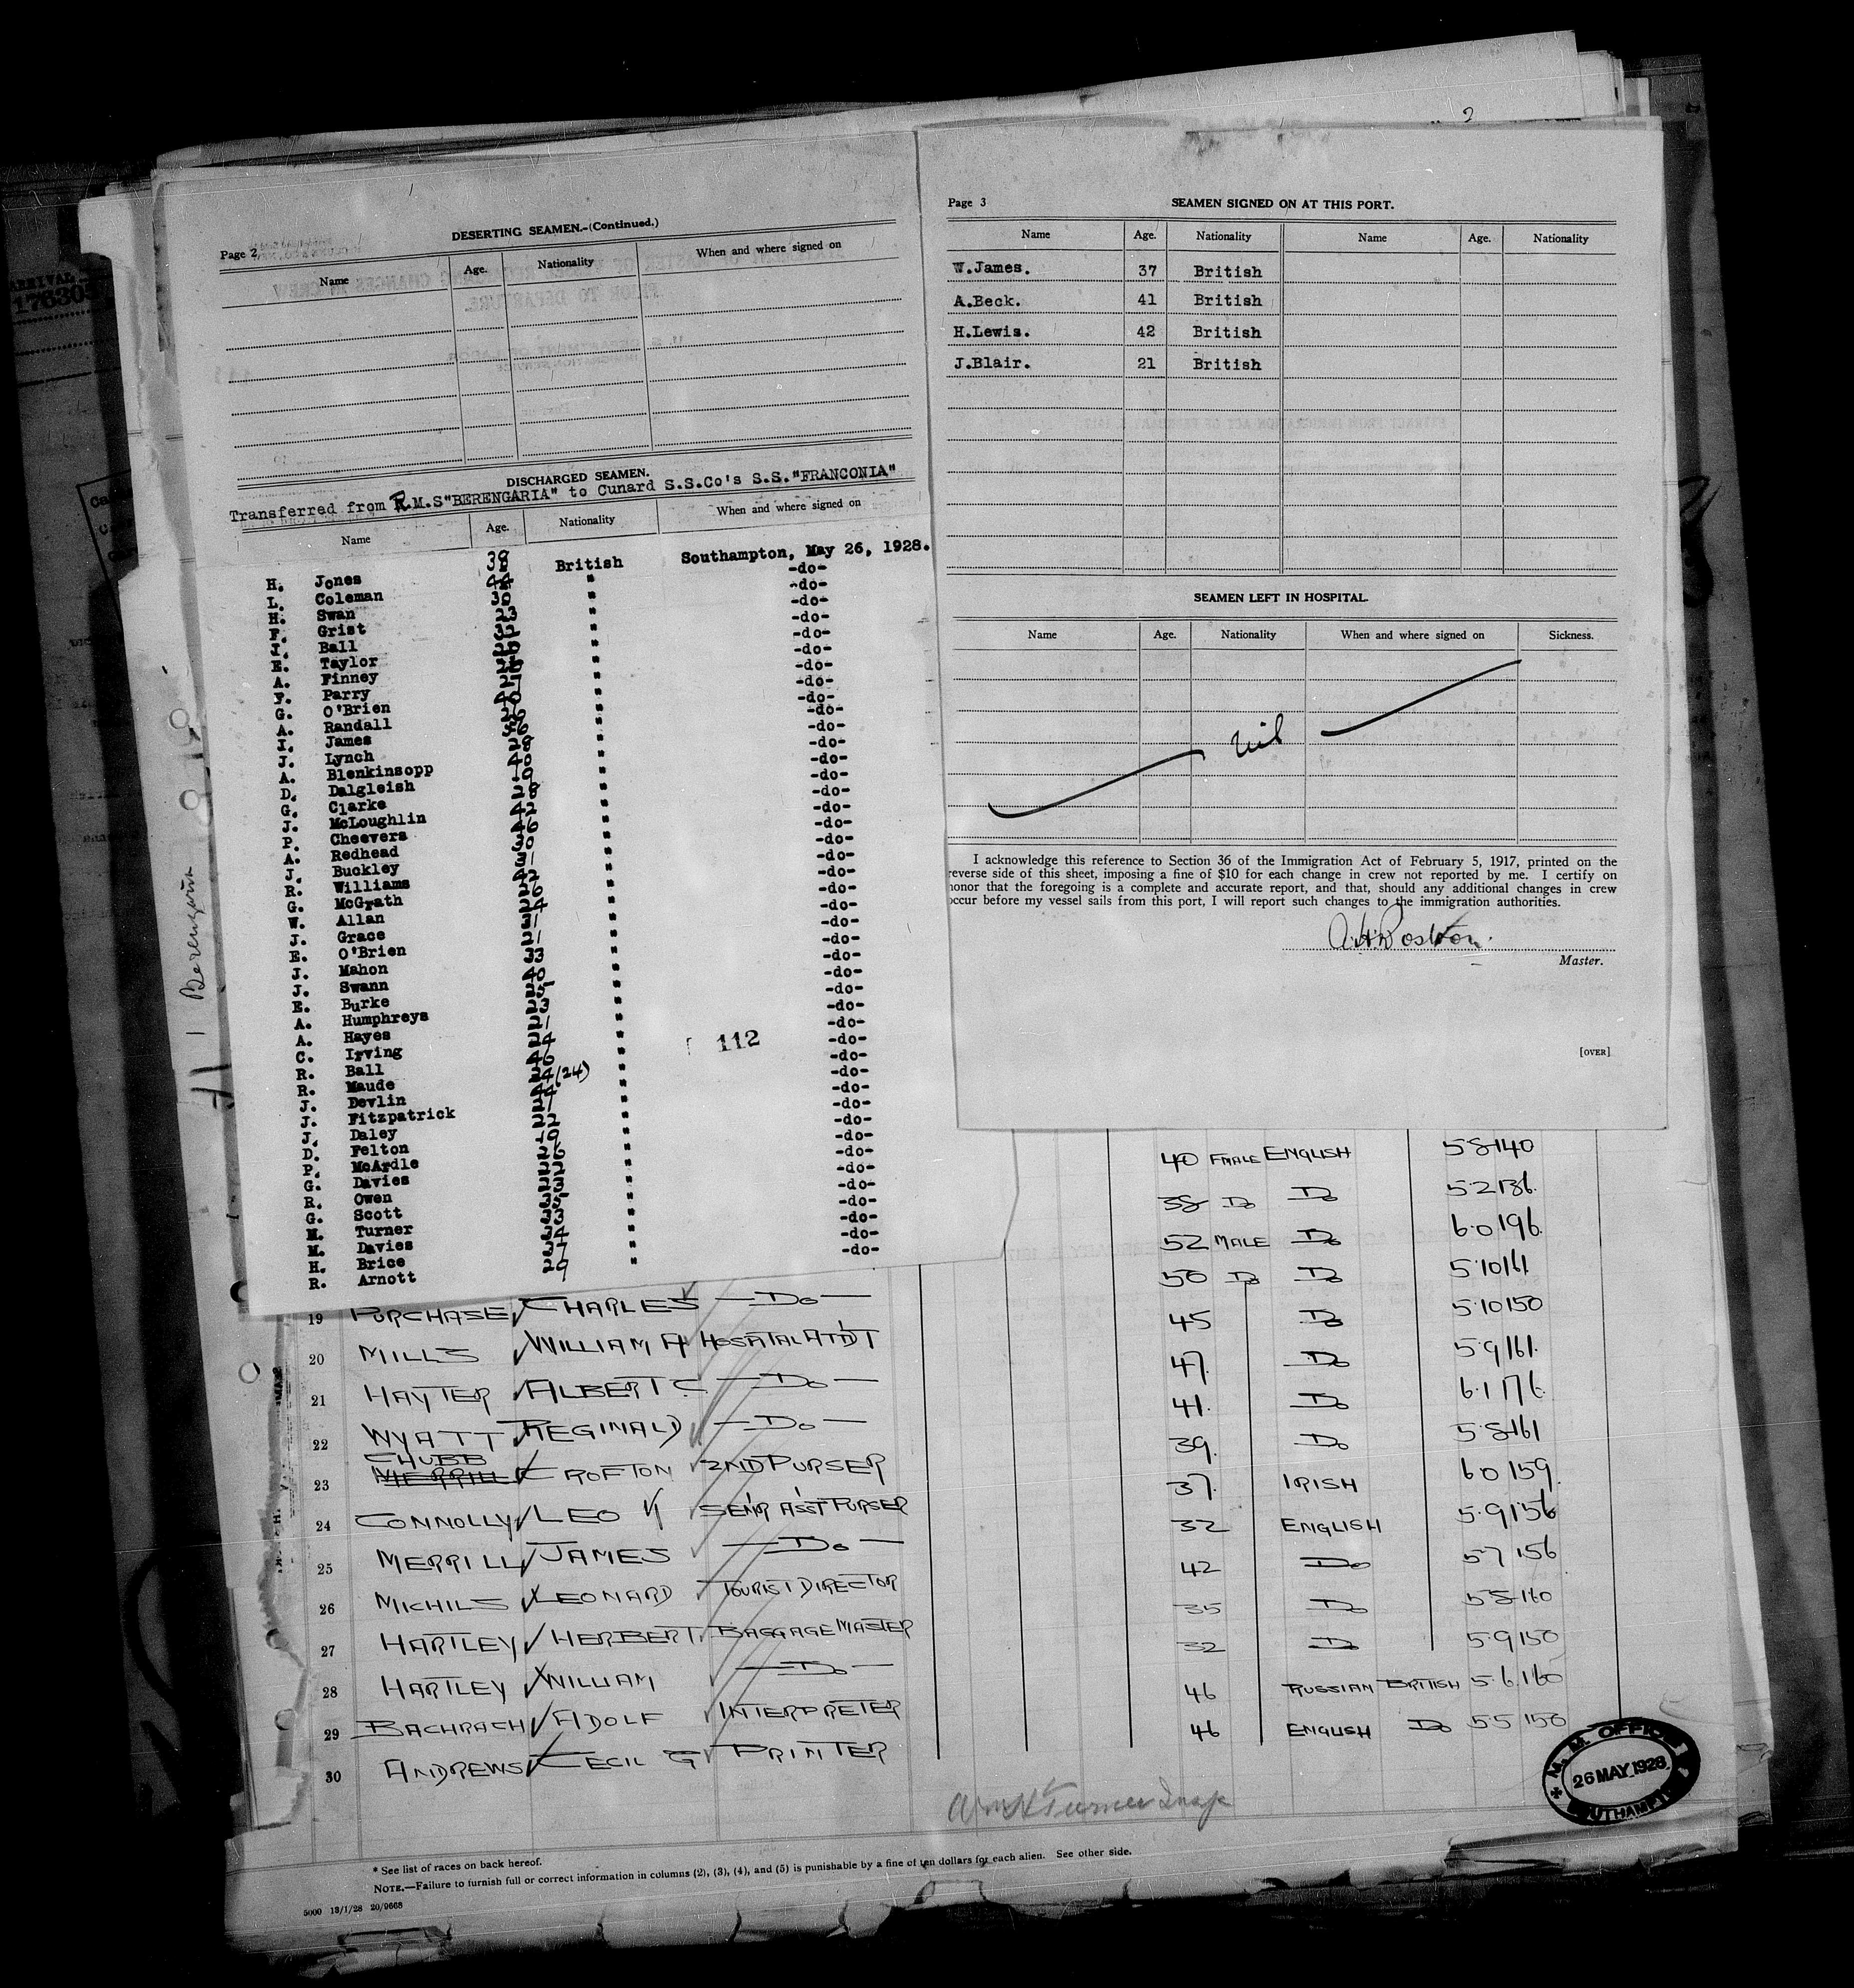 ARRIVAL
Page 2
DESERTING SEAMEN.-(Continued.)
Name Age. Nationality When and where signed on
DISCHARGED SEAMEN.
Transferred from R.M.S"BERENGARIA" to Cunard S.S.Co's S.S."FRANCONIA"
Name Age. Nationality When and where signed on
H. Jones 38 British Southampton, May 26, 1928.
L. Coleman 44 " -do-
H. Swan 30 " -do-
F. Grist 23 " -do-
J. Ball " -do-
E. Taylor " -do-
A. Finney " -do-
F. Parry " -do-
G. O'Brien " -do-
A. Randall " -do-
I. James 36 " -do-
J. Lynch " -do-
A. Blenkinsopp " -do-
D. Dalgleish " -do-
G. Clarke " -do-
J. McLoughlin " -do-
P. Cheevers 46 " -do-
A. Redhead 30 " -do-
J. Buckley " -do-
R. Williams " -do-
G. McGrath " -do-
W. Allan " -do-
J. Grace " -do-
E. O'Brien " -do-
J. Mahon 33 " -do-
J. Swann 40 " -do-
E. Burke " -do-
A. Humphreys " -do-
A. Hayes " -do-
C. Irving " -do-
R. Ball " -do-
R. Maude (24) " -do-
J. Devlin " -do-
J. Fitzpatrick " -do-
J. Daley " -do-
D. Felton " -do-
P. McArdle " -do-
G. Davies " -do-
R. Owen " -do-
G. Scott 35 " -do-
M. Turner 33 " -do-
M. Davies 34 " -do-
H. Brice 37 " -do-
R. Arnott 29 "
112
Berengaria
Page 3
SEAMEN SIGNED ON AT THIS PORT.
Name Age. Nationality Name Age. Nationality
W.James. 37 British
A.Beck. 41 British
H.Lewis. 42 British
J.Blair. 21 British
SEAMEN LEFT IN HOSPITAL.
Name Age. Nationality When and where signed on Sickness.
nil
I acknowledge this reference to Section 36 of the Immigration Act of February 5, 1917, printed on the
reverse side of this sheet, imposing a fine of $10 for each change in crew not reported by me. I certify on
honor that the foregoing is a complete and accurate report, and that, should any additional changes in crew
occur before my vessel sails from this port, I will report such changes to the immigration authorities.
A.H.Rostron.
Master.
[OVER]
40 FMALE ENGLISH 5·8 140
38 Do Do 5·2 136
52 MALE Do 6·0 196
50 Do Do 5·10 161
19 PURCHASE CHARLES —Do— 45 Do 5·10 150
20 MILLS WILLIAM A HOSPITAL ATD'T 47. Do 5·9 161
21 HAYTER ALBERT C —Do— 41. Do 6·1 176
22 WYATT REGINALD —Do— 39. Do 5·8 161
CHUBB
23 MERRILL CROFTON 2ND PURSER 37. IRISH 6·0 159
24 CONNOLLY LEO V SEN'R ASS'T PURSER 32 ENGLISH 5·9 156
25 MERRILL JAMES —Do— 42 Do 5·7 156
26 MICHILS LEONARD TOURIST DIRECTOR 35 Do 5·8 160
27 HARTLEY HERBERT BAGGAGE MASTER 32 Do 5·9 150
28 HARTLEY WILLIAM —Do—
29 BACHRACH ADOLF INTERPRETER 46 RUSSIAN BRITISH 5·6 160
30 ANDREWS CECIL G PRINTER 46 ENGLISH Do 5·5 150
Wm H Turner Insp
M.M. OFFICE
26 MAY 1928
SOUTHAMPTON
* See list of races on back hereof.
NOTE.—Failure to furnish full or correct information in columns (2), (3), (4), and (5) is punishable by a fine of ten dollars for each alien. See other side.
5000 13/1/28 20/9668